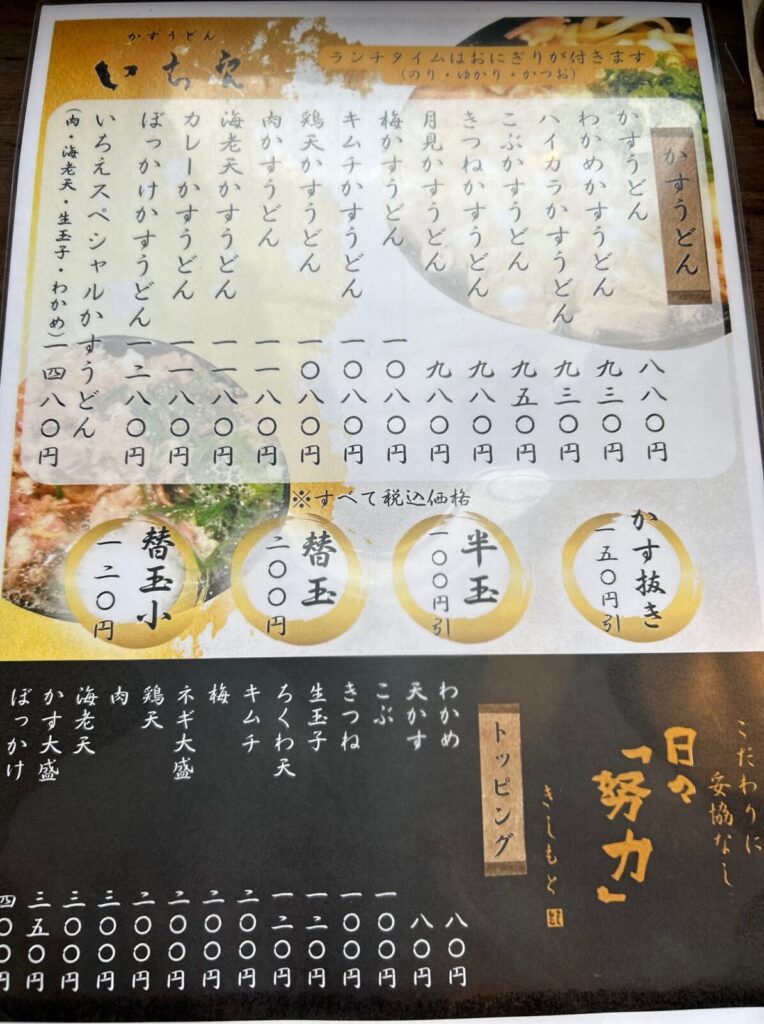 かすうどん
いちえ
ランチタイムはおにぎりが付きます
(のり・ゆかり・かつお)
かすうどん
かすうどん 八八〇円
わかめかすうどん 九三〇円
ハイカラかすうどん 九三〇円
こぶかすうどん 九五〇円
きつねかすうどん 九八〇円
月見かすうどん 九八〇円
梅かすうどん 一〇八〇円
キムチかすうどん 一〇八〇円
鶏天かすうどん 一〇八〇円
肉かすうどん 一一八〇円
海老天かすうどん 一一八〇円
カレーかすうどん 一一八〇円
ぼっかけかすうどん 一二八〇円
いちえスペシャルかすうどん
(肉・海老天・生玉子・わかめ) 一四八〇円
※すべて税込価格
かす抜き
一五〇円引
半玉
一〇〇円引
替玉
二〇〇円
替玉小
一二〇円
こだわりに
妥協なし
日々
「努力」
きしもと
トッピング
わかめ 八〇円
天かす 八〇円
こぶ 一〇〇円
きつね 一〇〇円
生玉子 一二〇円
ちくわ天 一二〇円
キムチ 二〇〇円
梅 二〇〇円
ネギ大盛 二〇〇円
鶏天 二〇〇円
肉 三〇〇円
海老天 三〇〇円
かす大盛 三五〇円
ぼっかけ 四〇〇円